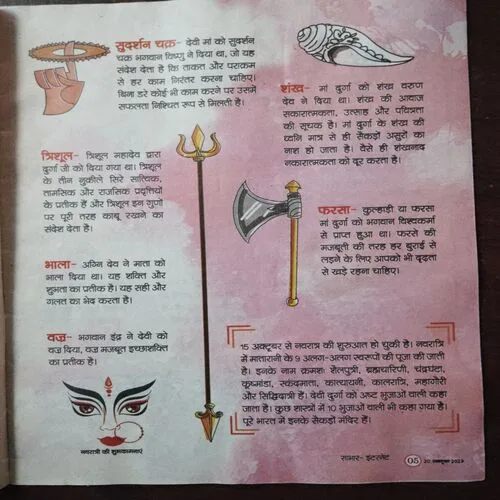 सुदर्शन चक्र- देवी मां को सुदर्शन
चक्र भगवान विष्णु ने दिया था, जो यह
संदेश देता है कि ताकत और पराक्रम
से हर काम निरंतर करना चाहिए।
बिना डरे कोई भी काम करने पर उसमें
सफलता निश्चित रूप से मिलती है।
त्रिशूल- त्रिशूल महादेव द्वारा
दुर्गा जी को दिया गया था। त्रिशूल
के तीन नुकीले सिरे सात्विक,
तामसिक और राजसिक प्रवृत्तियों
के प्रतीक हैं और त्रिशूल इन गुणों
पर पूरी तरह काबू रखने का
संदेश देता है।
भाला- अग्नि देव ने माता को
भाला दिया था। यह शक्ति और
शुभता का प्रतीक है। यह सही और
गलत का भेद करता है।
वज्र- भगवान इंद्र ने देवी को
वज्र दिया, वज्र मजबूत इच्छाशक्ति
का प्रतीक है।
नवरात्री की शुभकामनाएं
शंख- मां दुर्गा को शंख वरुण
देव ने दिया था। शंख की आवाज
सकारात्मकता, उत्साह और पवित्रता
की सूचक है। मां दुर्गा के शंख की
ध्वनि मात्र से ही सैकड़ों असुरों का
नाश हो जाता है। वैसे ही शंखनाद
नकारात्मकता को दूर करता है।
फरसा- कुल्हाड़ी या फरसा
मां दुर्गा को भगवान विश्वकर्मा
से प्राप्त हुआ था। फरसे की
मजबूती की तरह हर बुराई से
लड़ने के लिए आपको भी दृढ़ता
से खड़े रहना चाहिए।
15 अक्टूबर से नवरात्र की शुरुआत हो चुकी है। नवरात्रि
में मातारानी के 9 अलग-अलग स्वरूपों की पूजा की जाती
है। इनके नाम क्रमशः शैलपुत्री, ब्रह्मचारिणी, चंद्रघंटा,
कूष्मांडा, स्कंदमाता, कात्यायनी, कालरात्रि, महागौरी
और सिद्धिदात्री हैं। देवी दुर्गा को अष्ट भुजाओं वाली कहा
जाता है। कुछ शास्त्रों में 10 भुजाओं वाली भी कहा गया है।
पूरे भारत में इनके सैकड़ों मंदिर हैं।
साभार- इंटरनेट 05 20 अक्टूबर 2023